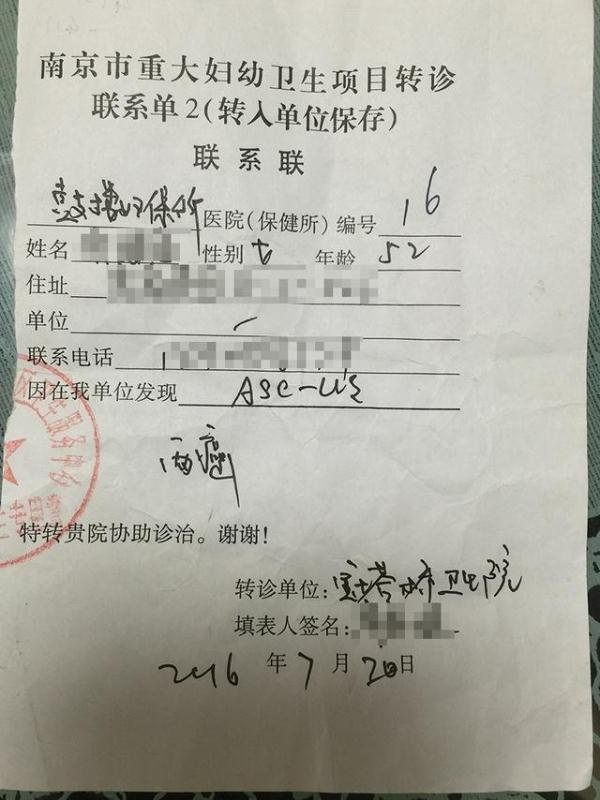 南京市重大妇幼卫生项目转诊
联系单2(转入单位保存)
联系联
鼓楼妇保所 医院(保健所)编号 16
姓名 性别 女 年龄 52
住址
单位 /
联系电话
因在我单位发现 ASC-US
两癌
特转贵院协助诊治。谢谢!
转诊单位: 宝塔桥卫生院
填表人签名:
2016 年 7 月 20 日
生服务中心